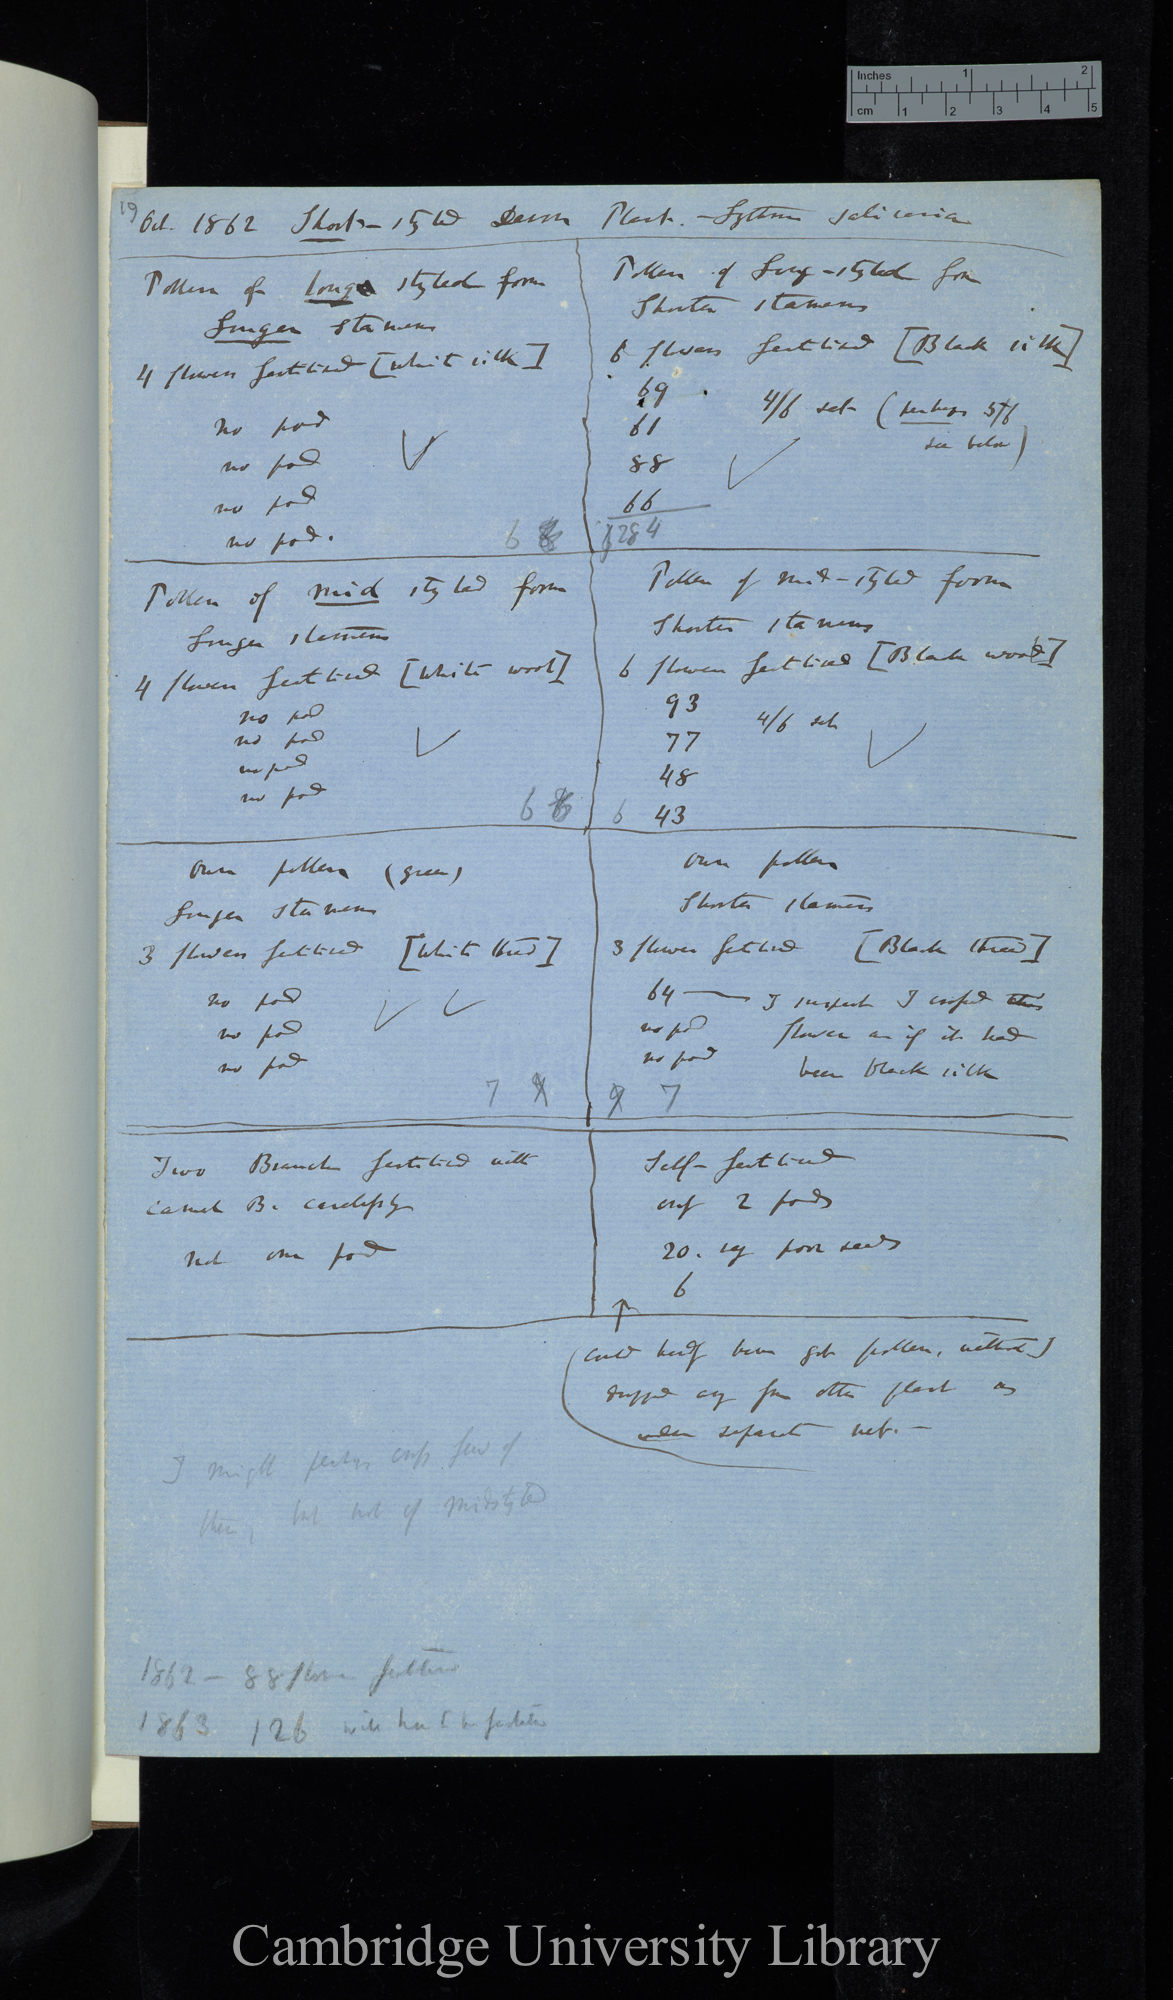 Inches 1 2
cm 1 2 3 4 5
19
Oct. 1862 Short-styled Plant. - Lythrum salicaria
Pollen of long styled form
Longer stamens
4 flowers fertilised [White silk]
no pod
no pod
no pod
no pod.
6
Pollen of Long-styled form
Shorter stamens
6 flowers fertilised [Black silk]
69
4/6 set (perhaps 5/6
61
see below)
88
66
284
Pollen of mid styled form
Longer stamens
4 flowers fertilised [White wool]
no pod
no pod
no pod
no pod
6
Pollen of mid-styled form
Shorter stamens
6 flowers fertilised [Black wool]
93
4/6 set
77
48
6 43
Own pollen (green)
Longer stamens
3 flowers fertilised [White thread]
no pod
no pod
no pod
7
Own pollen
Shorter stamens
3 flowers fertilised [Black thread]
64 — I suspect I crossed this
no pod flower as if it had
no pod been black silk
7
Two Branches fertilised with
camel B. carefully
not one pod
Self-fertilised
only 2 pods
20. very poor seeds
6
(could hardly have got pollen, without I
dragged any from other plant as
under separate net. —
I might perhaps cross few of
them, but not of Midstyled
1862 - 88 flowers fertilised
1863 126 will have to be fertilised
Cambridge University Library